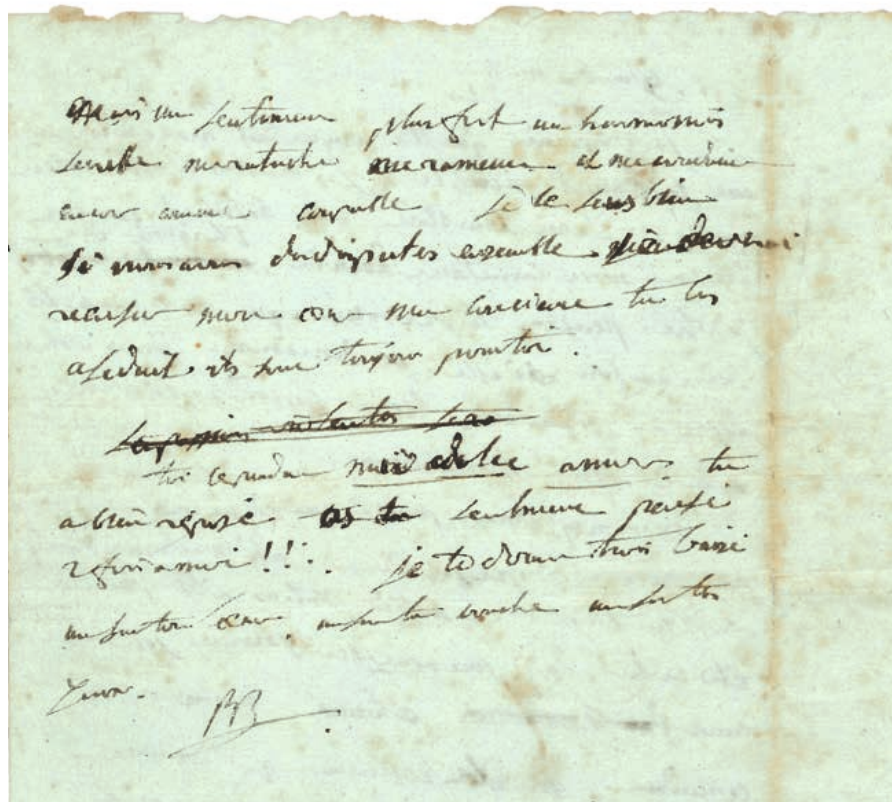 Mais un sentiment plus fort un harmonies
secrette me ratache me ramene et me
encor comme coupable je le sens bien
si nous avons des disputes ensemble
recuser mon cœur ma consience tu les
a seduit ils sont toujour pour toi.
La passion violentes
toi cependan mio dolce amor tu
a bien reposé as tu seulement pensé
2 fois a moi!!! je te donne trois baisé
un sur ton cœur un sur ta bouche un sur tes
yeux.
BB